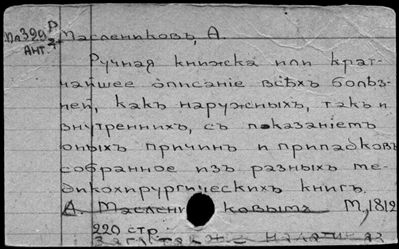 Пл399 Р
Ант. 2
Маслениковъ, А.
Ручная книжка или крат-
чайшее описанiе всѣхъ болѣз-
ней, какъ наружныхъ, такъ и
внутреннихъ, съ показанiемъ
оныхъ причин и припадковъ
собранное изъ разныхъ ме-
дикохирургическихъ книгъ.
А. Маслени ковымъ М, 1812
220 стр.